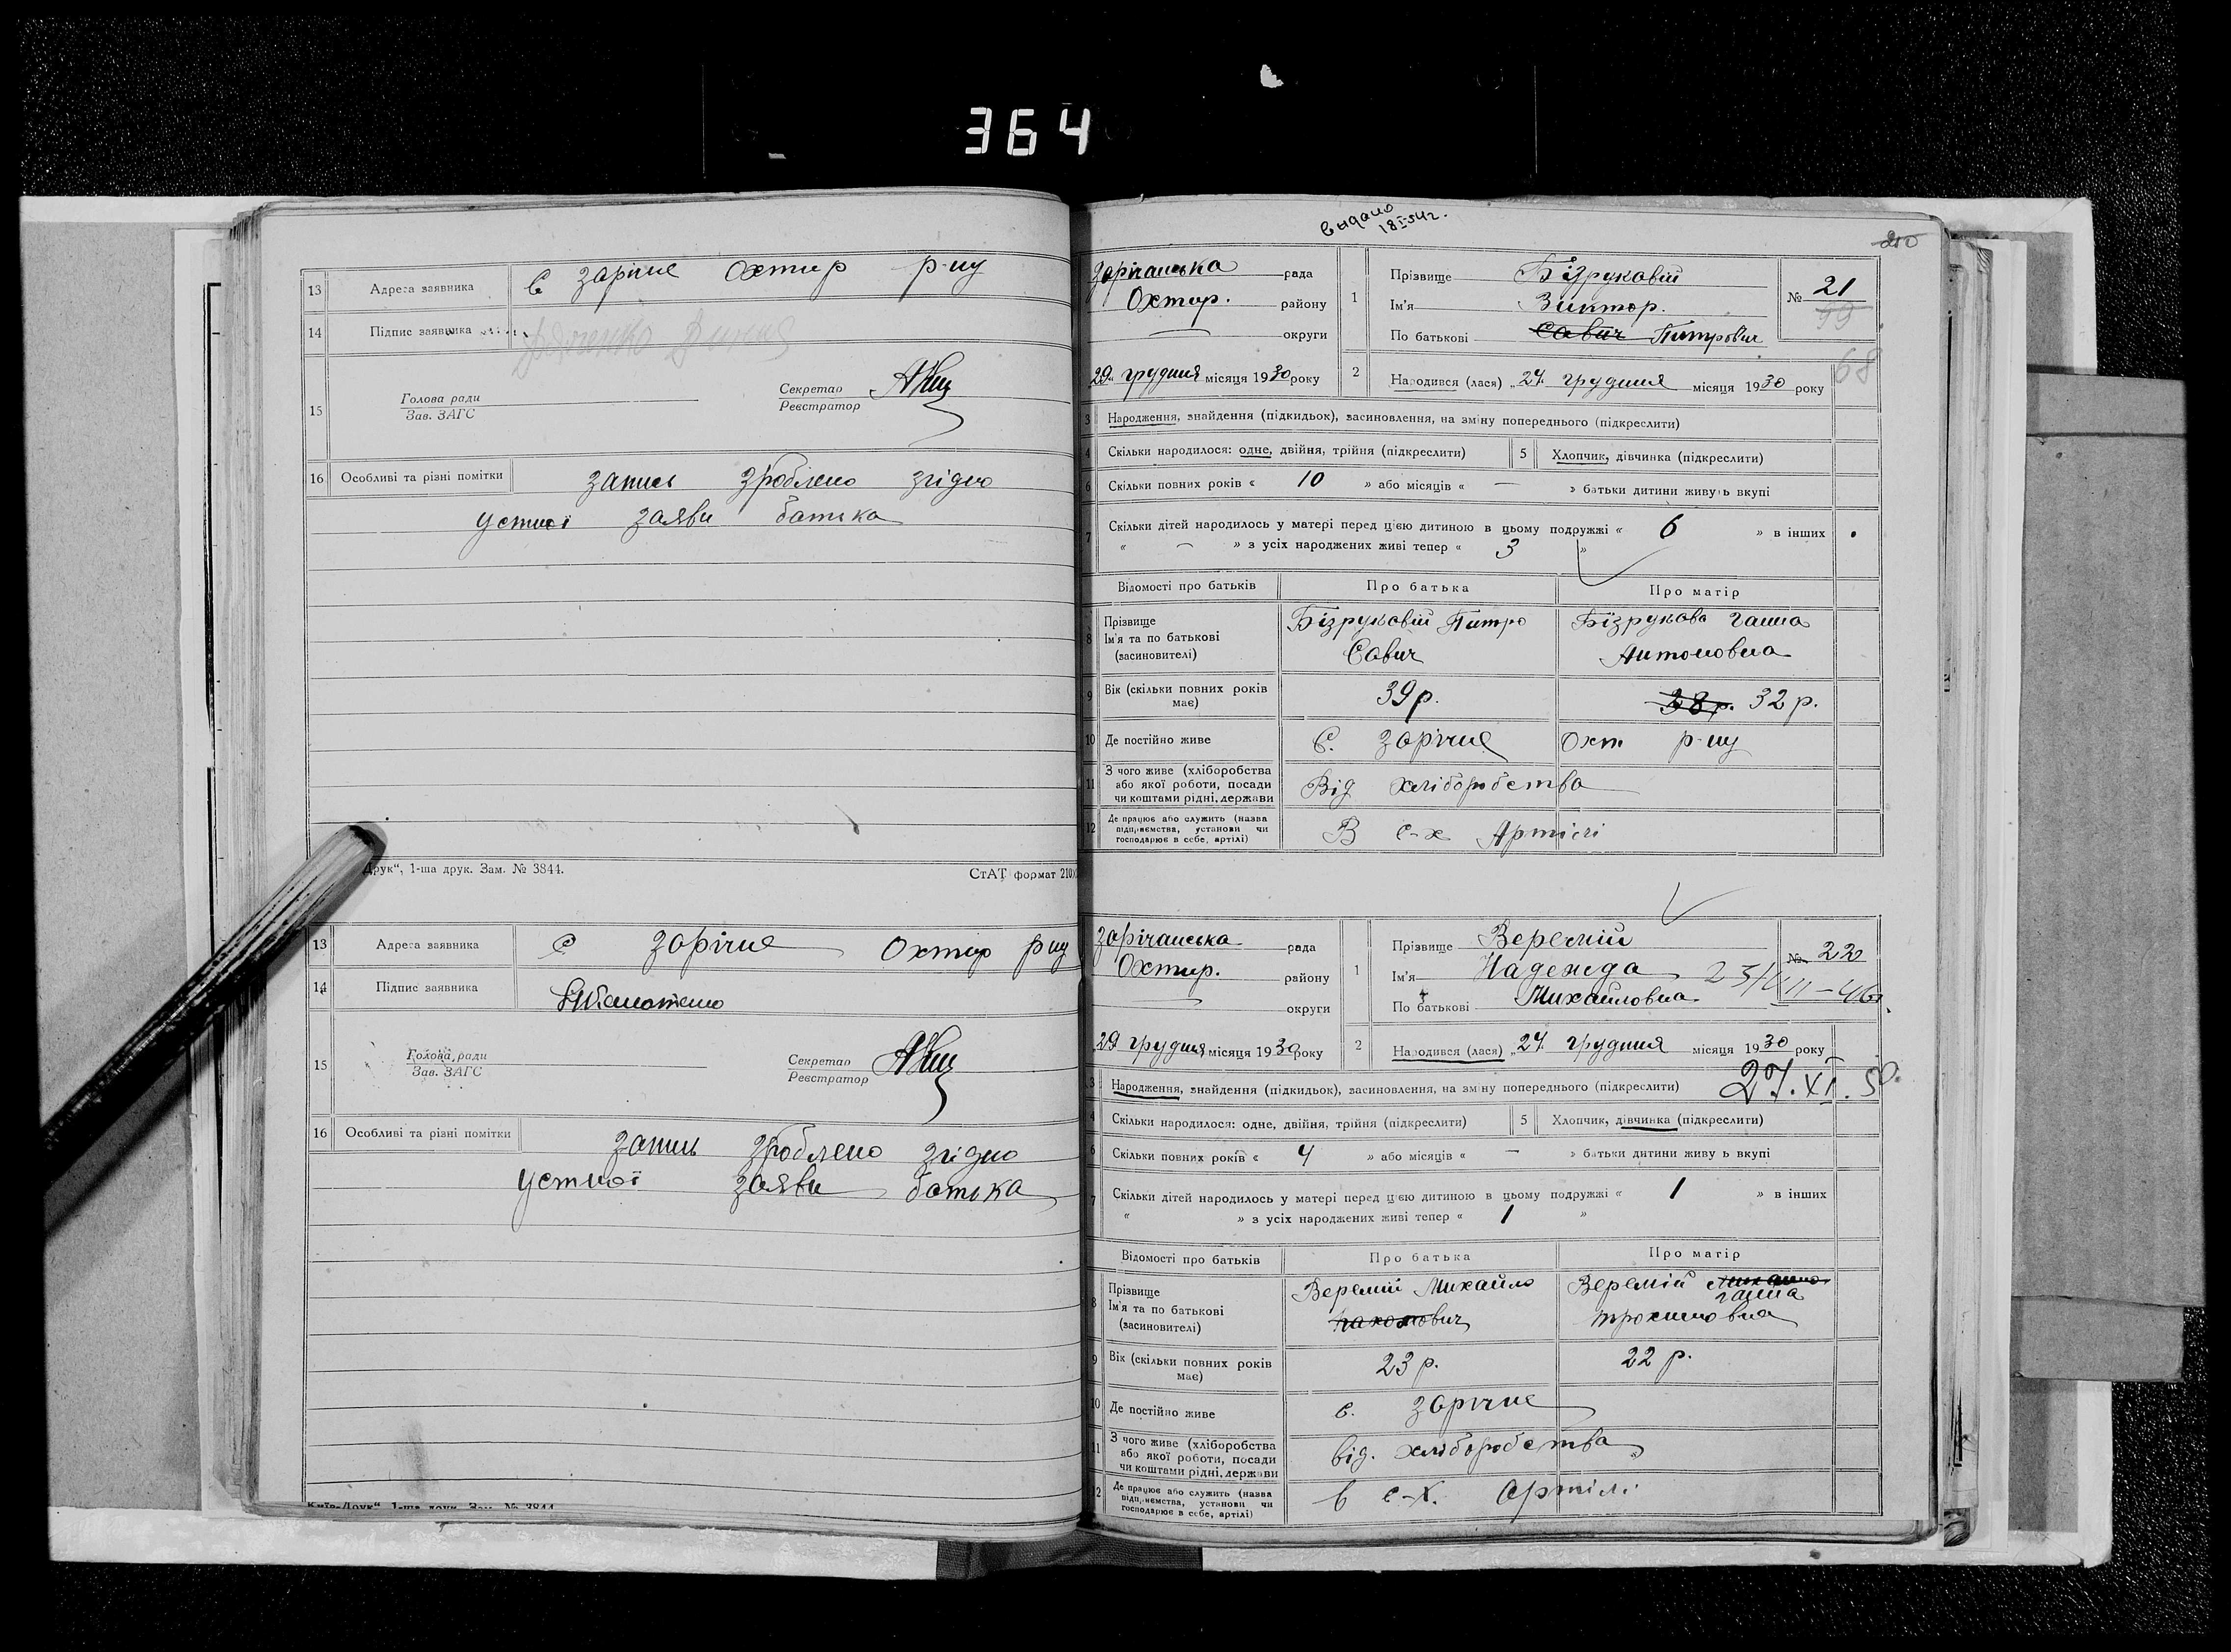 364
13 Адреса заявника с зарічне Охтир р-ну
14 Підпис заявника
15 Голова ради
Зав. ЗАГС
Секретар
Реєстратор
16 Особливі та різні помітки запись зроблено згідно
устної заяви батька
Друк“, 1-ша друк. Зам. № 3844.
СтАТ формат 210
13 Адреса заявника с зарічне Охтир р-ну
14 Підпис заявника
15 Голова ради
Зав. ЗАГС
Секретар
Реєстратор
16 Особливі та різні помітки запись зроблено згідно
устної заяви батька
Київ-Друк“, 1-ша друк. Зам. № 3844
видано
18 I-54 г.
210
зарічанська рада
Охтир. району
округи
1 Прізвище Бізруковій
Ім'я Виктор.
По батькові Савич Питрович
№ 21
99
68
29 грудня місяця 1930 року
2 Народився (лася) „27. грудния місяця 1930 року
3 Народження, знайдення (підкидьок), засиновлення, на зміну попереднього (підкреслити)
4 Скільки народилося: одне, двійня, трійня (підкреслити) 5 Хлопчик, дівчинка (підкреслити)
6 Скільки повних років « 10 » або місяців « — » батьки дитини живуть вкупі
7 Скільки дітей народилось у матері перед цією дитиною в цьому подружжі « 6 » в інших
« — » з усіх народжених живі тепер « 3 »
Відомості про батьків Про батька Про матір
8 Прізвище
Ім'я та по батькові
(засновителі)
Бізруковій Питро
Савич
Бізрукова Ганна
Антоновна
9 Вік (скільки повних років
має) 39 р. 28 р. 32 р.
10 Де постійно живе С. зарічне Охт р-ну
11 З чого живе (хліборобства
або якої роботи, посади
чи коштами рідні, держави
Від хліборобства
12 Де працює або служить (назва
підприємства, установи чи
господарює в себе, артілі)
В с-х Артілі
зарічанська рада
Охтир. району
округи
1 Прізвище Веремій
Ім'я Надежда
По батькові Михайловна
№ 22
29 грудня місяця 1930 року
2 Народився (лася) „27. грудния місяця 1930 року
27. XI. 50.
3 Народження, знайдення (підкидьок), засиновлення, на зміну попереднього (підкреслити)
4 Скільки народилося: одне, двійня, трійня (підкреслити) 5 Хлопчик, дівчинка (підкреслити)
6 Скільки повних років « 4 » або місяців « — » батьки дитини живу ь вкупі
7 Скільки дітей народилось у матері перед цією дитиною в цьому подружжі « 1 » в інших
« » з усіх народжених живі тепер « 1 »
Відомості про батьків Про батька Про матір
8 Прізвище
Ім'я та по батькові
(засиновителі)
Веремій Михайло
Веремій
Ганна
трохимовна
9 Вік (скільки повних років
має) 23 р. 22 р.
10 Де постійно живе с. зарічне
11 З чого живе (хліборобства
або якої роботи, посади
чи коштами рідні, держави
від. хліборобства
12 Де працює або служить (назва
підприємства, установи чи
господарює в себе, артілі)
в с-х. Артілі